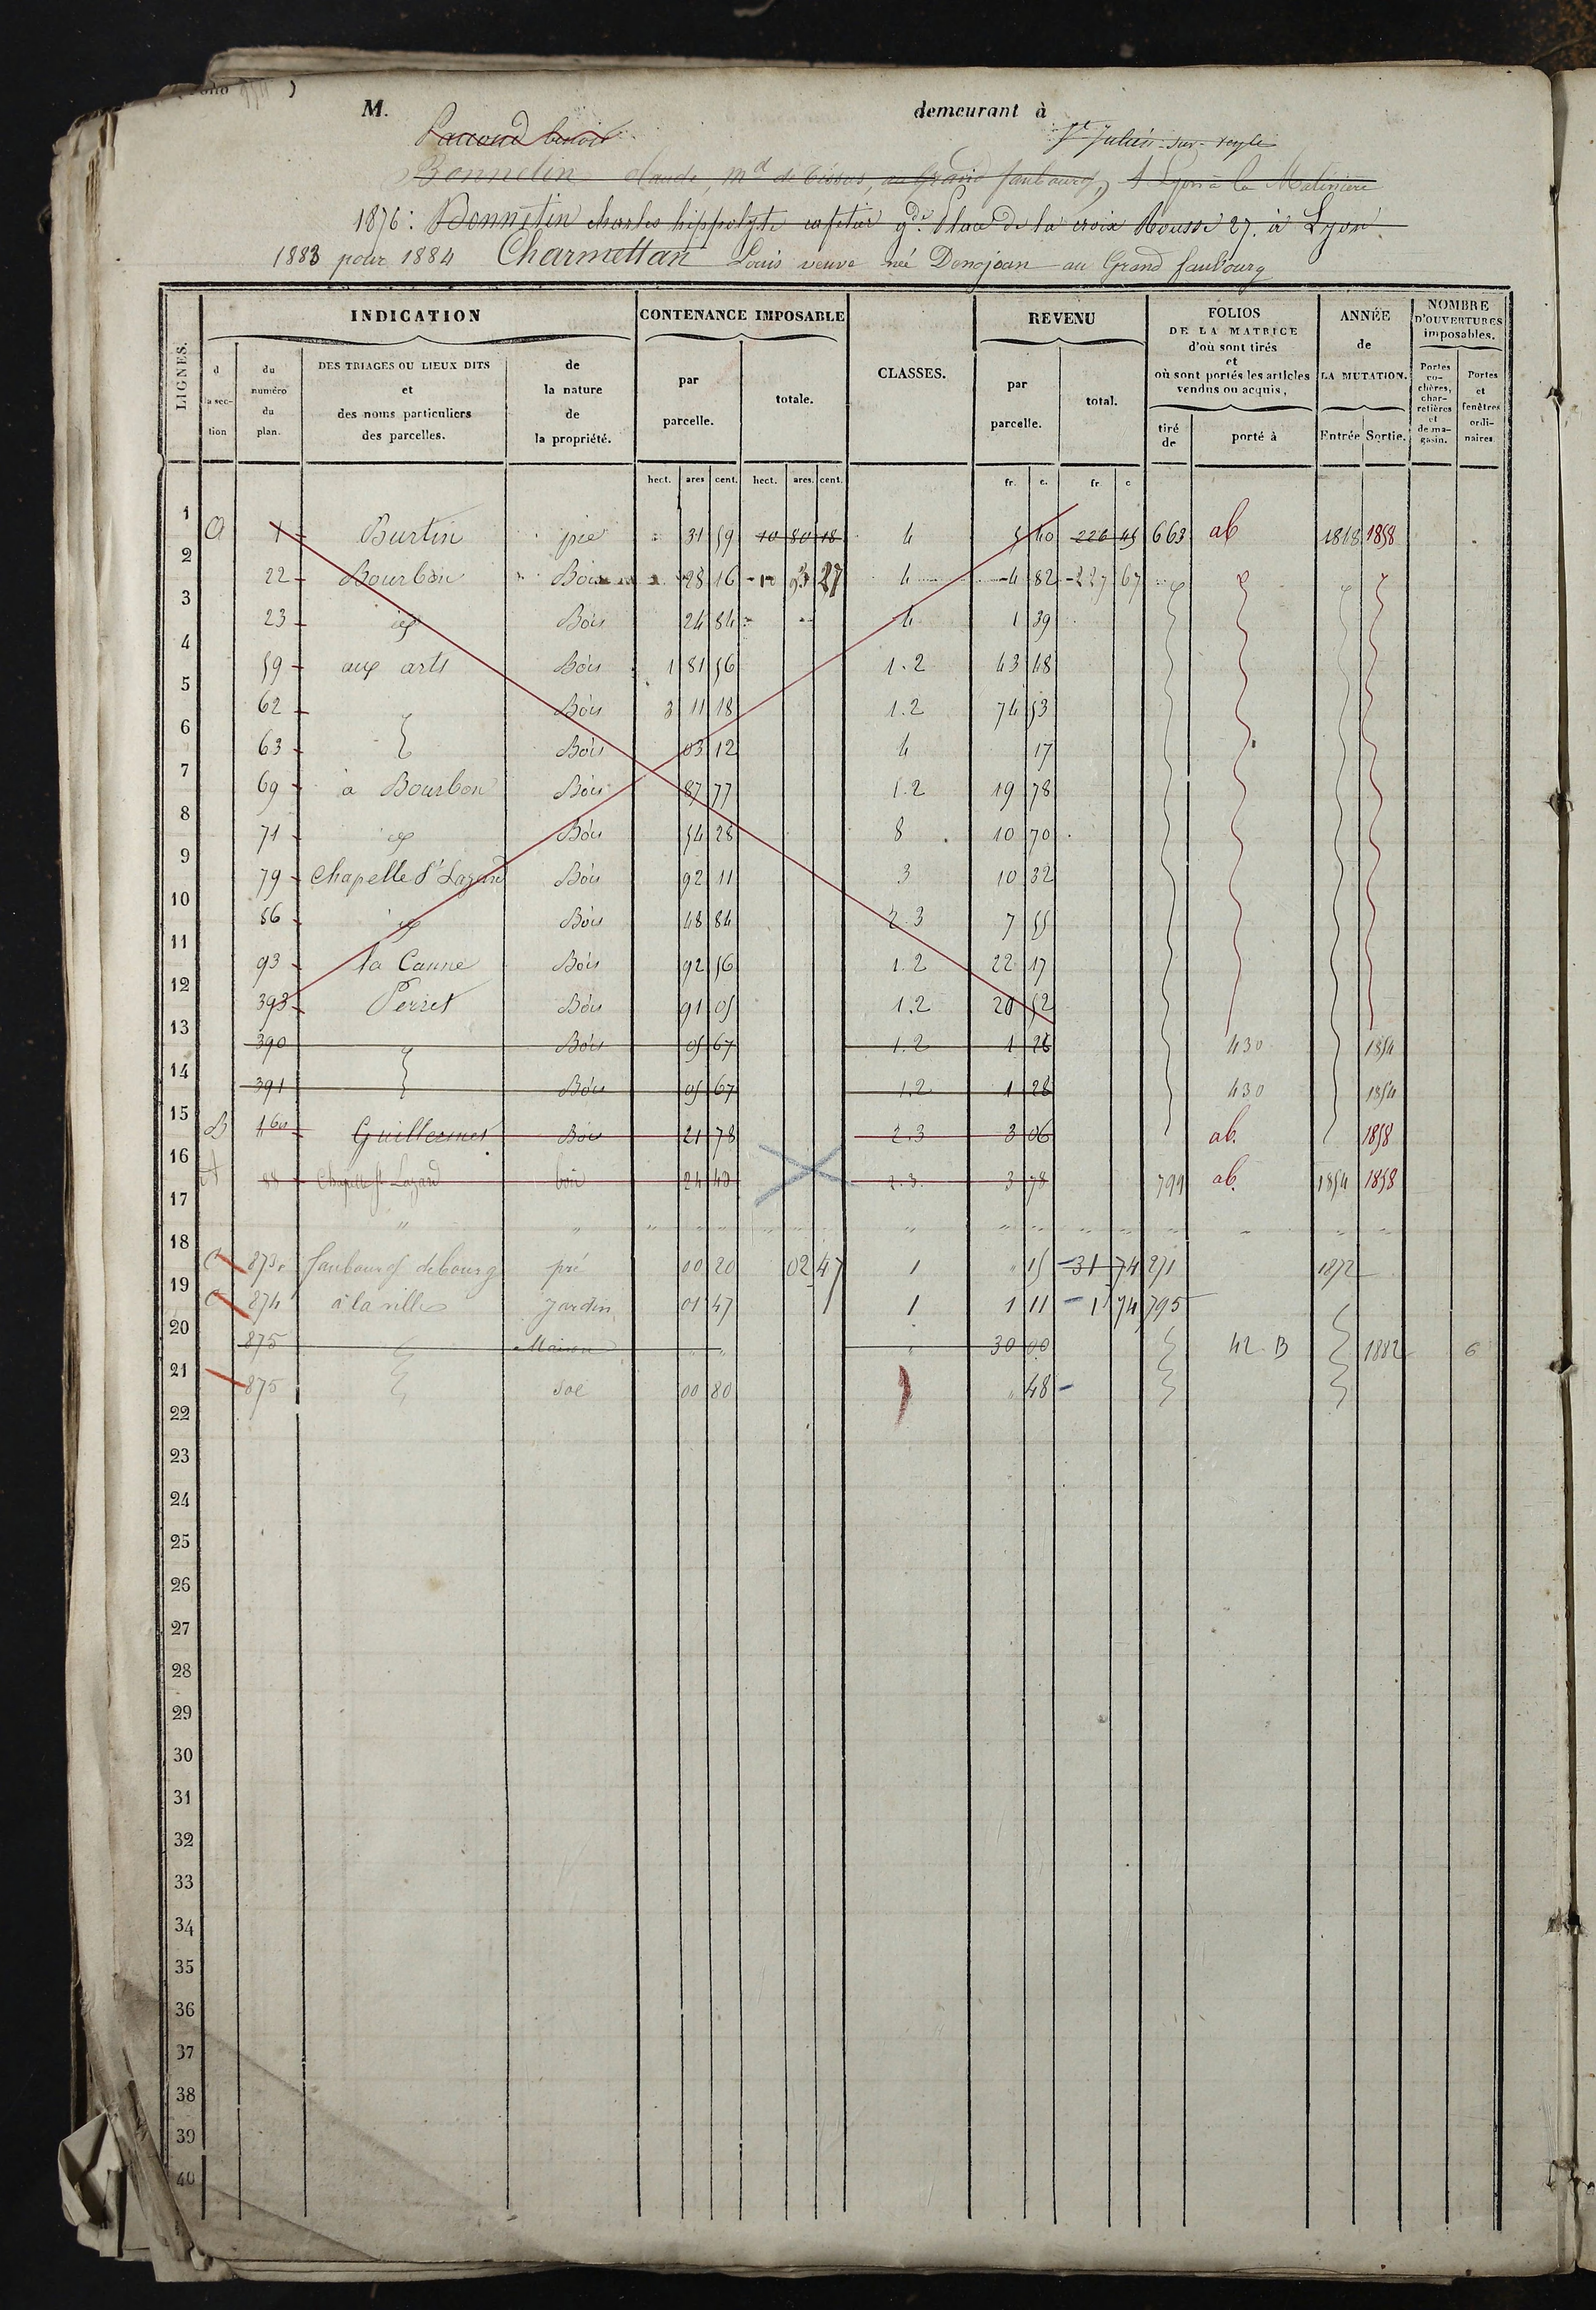 M. demeurant à
benoit St Julien-sur-reyle
Bonnetin Claude, md de tissus, au Grand faubourg, à Lyon à la
1876: Bonnetin charles hippolyte gde Place de la croix Rousse 27. à Lyon
1883 pour 1884 Charmettan Louis veuve née Donojean au Grand faubourg
LIGNES. INDICATION CONTENANCE IMPOSABLE CLASSES. REVENU FOLIOS DE LA MATRICE d'où sont tirés et où sont portés les articles vendus ou acquis, ANNÉE de LA MUTATION. NOMBRE D'OUVERTURES imposables.
la section du numéro du plan. DES TRIAGES OU LIEUX DITS et des noms particuliers des parcelles. de la nature de la propriété. par parcelle. totale. par parcelle. total. tiré de porté à Entrée Sortie. Portes cochères, charretières et de magasin. Portes et fenêtres ordinaires.
hect. ares cent. hect. ares. cent. fr. c. fr. c
1 A 1 Burtin pré 31 59 10 80 18 4 5 40 226 45 663 ab 1848 1858
2 22 Bourbon Bois 28 16 10 93 27 4 4 82 227 67
3 23 id Bois 24 84 4 1 39
4 59 aux arts Bois 1 81 56 1.2 43 48
5 62 Bois 3 11 18 1.2 74 53
6 63 Bois 03 12 4 17
7 69 à Bourbon Bois 87 77 1.2 19 78
8 71 id Bois 54 28 8 10 70
9 79 Chapelle St Lazard Bois 92 11 3 10 32
10 86 id Bois 48 84 2.3 7 55
11 93 la Canne Bois 92 56 1.2 22 17
12 393 Perret Bois 91 05 1.2 20 52
13 390 Bois 05 67 1.2 1 28 430 1854
14 391 Bois 05 67 1.2 1 28 430 1854
15 B 160 Guillermet Bois 21 78 2.3 3 06 ab. 1858
16 A 88 Chapelle St Lazard bois 24 40 2.3. 3 78 799 ab. 1854 1858
17 " " " " " " " "
18 C 873 faubourg de bourg pré 00 20 02 47 1 " 15 31 74 271 1872
19 C 874 à la ville Jardin 01 47 1 1 11 1 74 795
20 875 Maison " " " 30 00 42 B 1882 6
21 875 sol 00 80 " 48
22
23
24
25
26
27
28
29
30
31
32
33
34
35
36
37
38
39
40